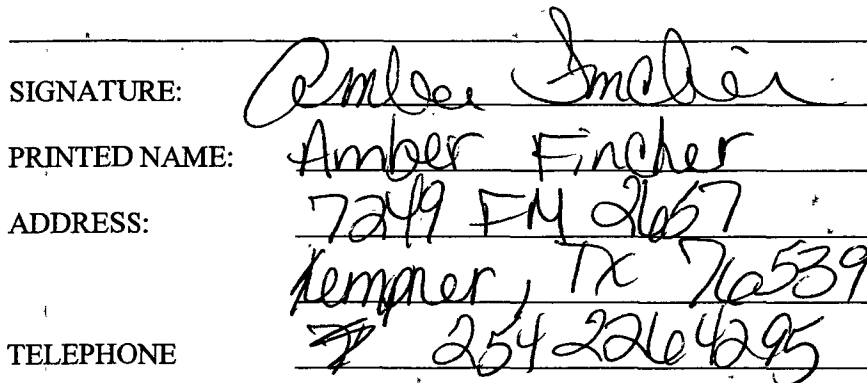 SIGNATURE: Amber Fincher
PRINTED NAME: Amber Fincher
ADDRESS: 7249 FM 2657
Kempner, TX 76539
TELEPHONE 254 226 4295